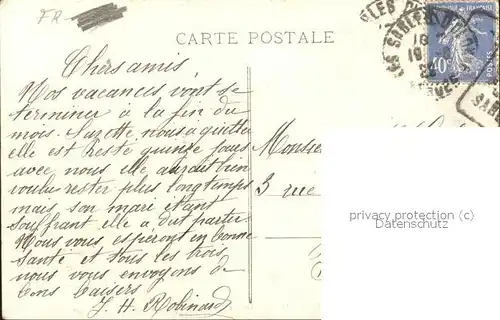 FR
CARTE POSTALE
LES SABLES D'OLONNE
40c
POSTES
Chers amis
Nos vacances vont se
terminer à la fin du
mois. Suzette nous a quitté
elle est resté quinze jours
avec nous elle aurait bien
voulu rester plus longtemps
mais son mari étant
souffrant elle a dut partir
Nous vous espérons en bonne
santé et tous les trois
nous vous envoyons de
bons baisers
J. H. Robinard
Monsieur
3 rue
privacy protection (c)
Datenschutz